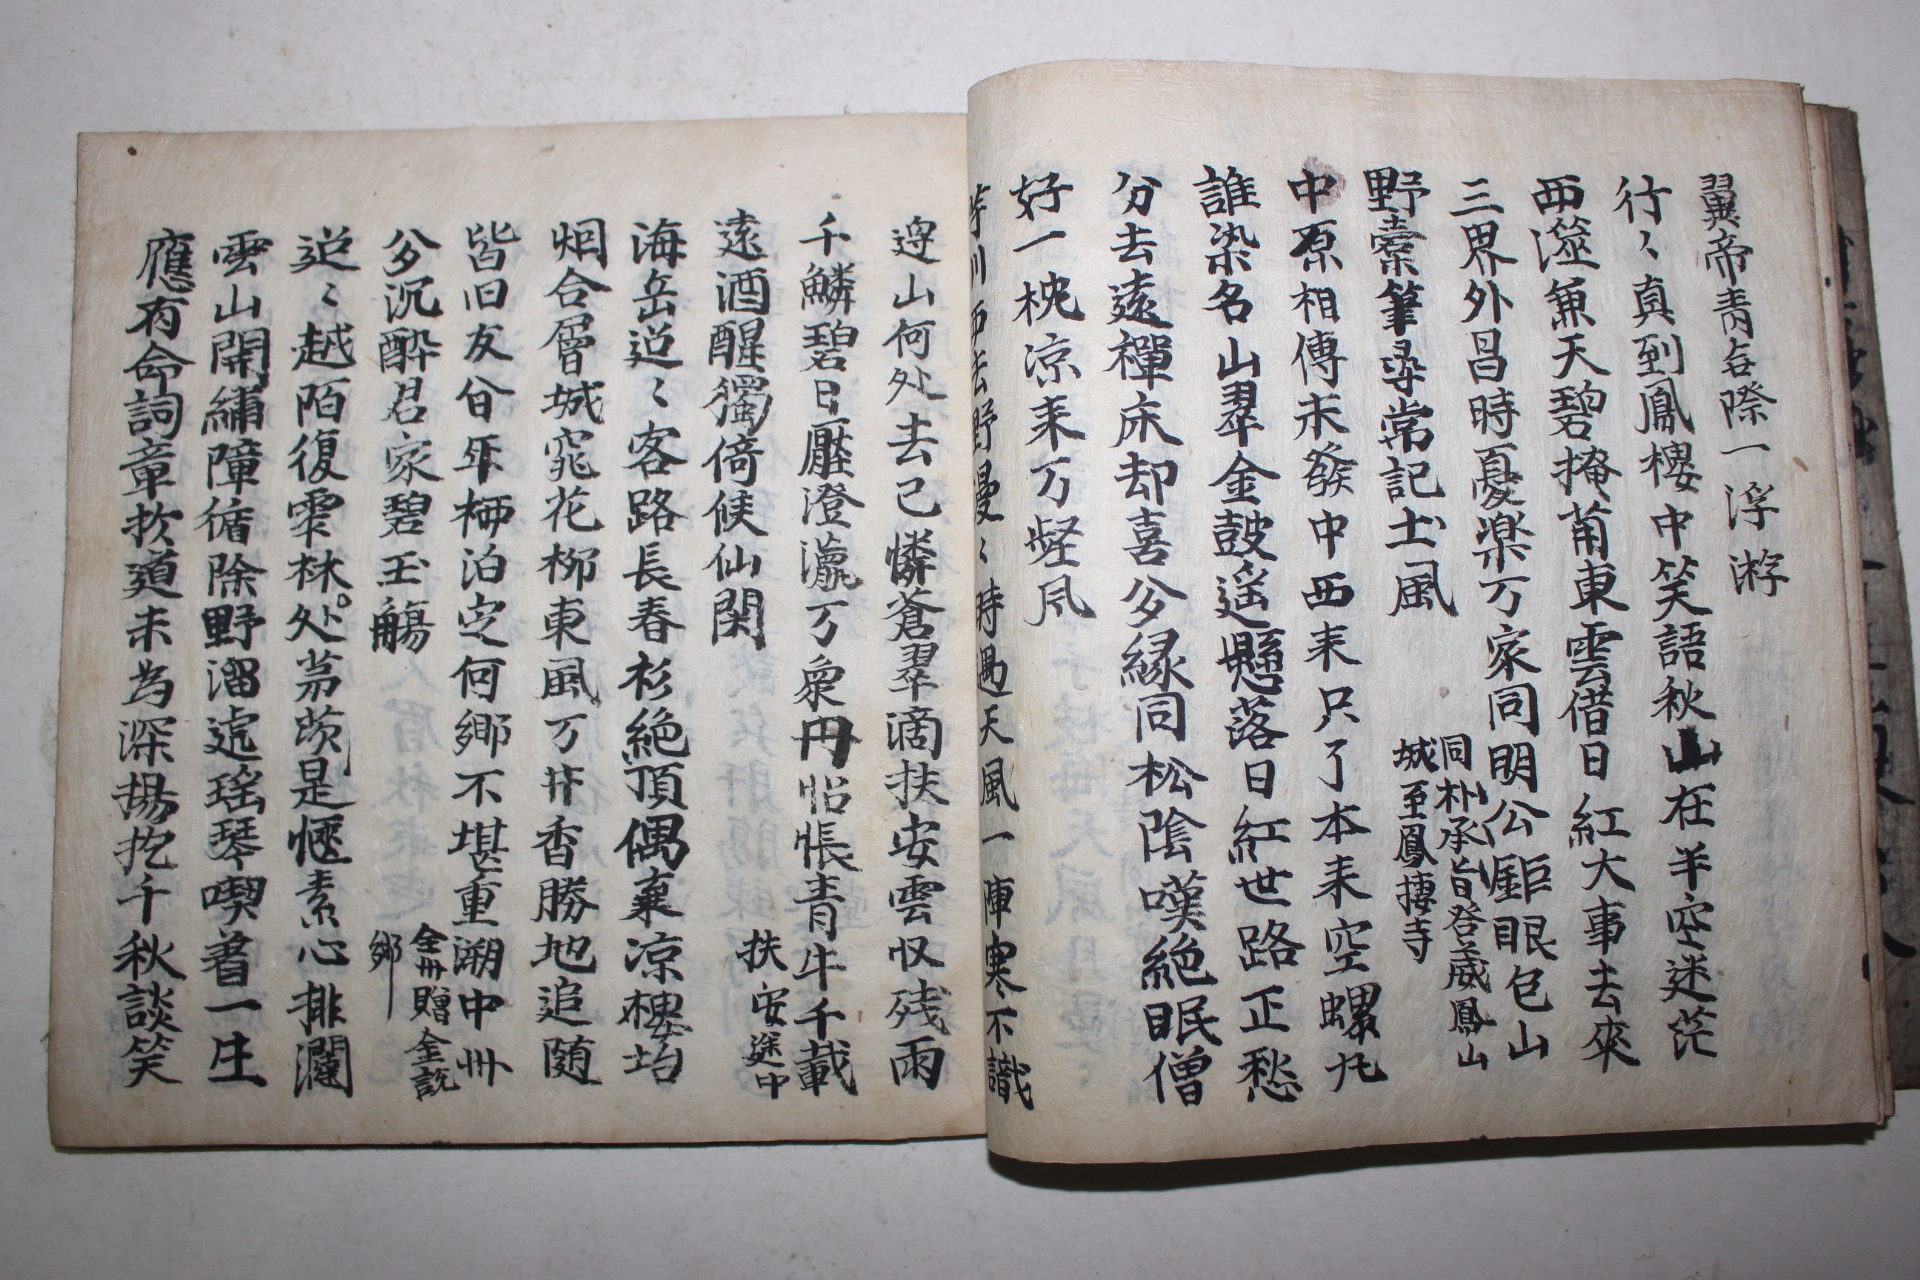 翼帝靑各際一浮游
行〻真到鳳樓中笑語秋山在半空迷茫
西澨兼天碧掩莆東雲借日紅大事去來
三界外昌時憂楽万家同明公鉅眼包山
同朴承旨登威鳳山
城至鳳棲寺
野橐筆尋常記土風
中原相傳未發中西来只了本来空螺丸
誰染名山翠金鼓遥懸落日紅世路正愁
分去遠禪床却喜分緣同松陰嘆絶眠僧
好一枕凉来万壑风
川西去野漫〻時過天風一陣寒不識
邊山何处去已憐蒼翠滴扶安雲収残雨
千鱗碧日壓澄瀛万象円怊悵青牛千載
扶安途中
遠酒醒獨倚候仙関
海岳迢〻客路長春衫絶頂偶乗凉樓坮
烟合層城窕花柳東風万井香勝地追随
皆旧友昔年栖泊定何鄉不堪重溯中州
全州贈金說
鄉
分沉酔君家碧玉觴
迢〻越陌復雫林处茅茨是愜素心排瀾
雲山開繡障循除野溜遞瑤琴喫着一生
應有命詞章扵道未為深揚扢千秋談笑